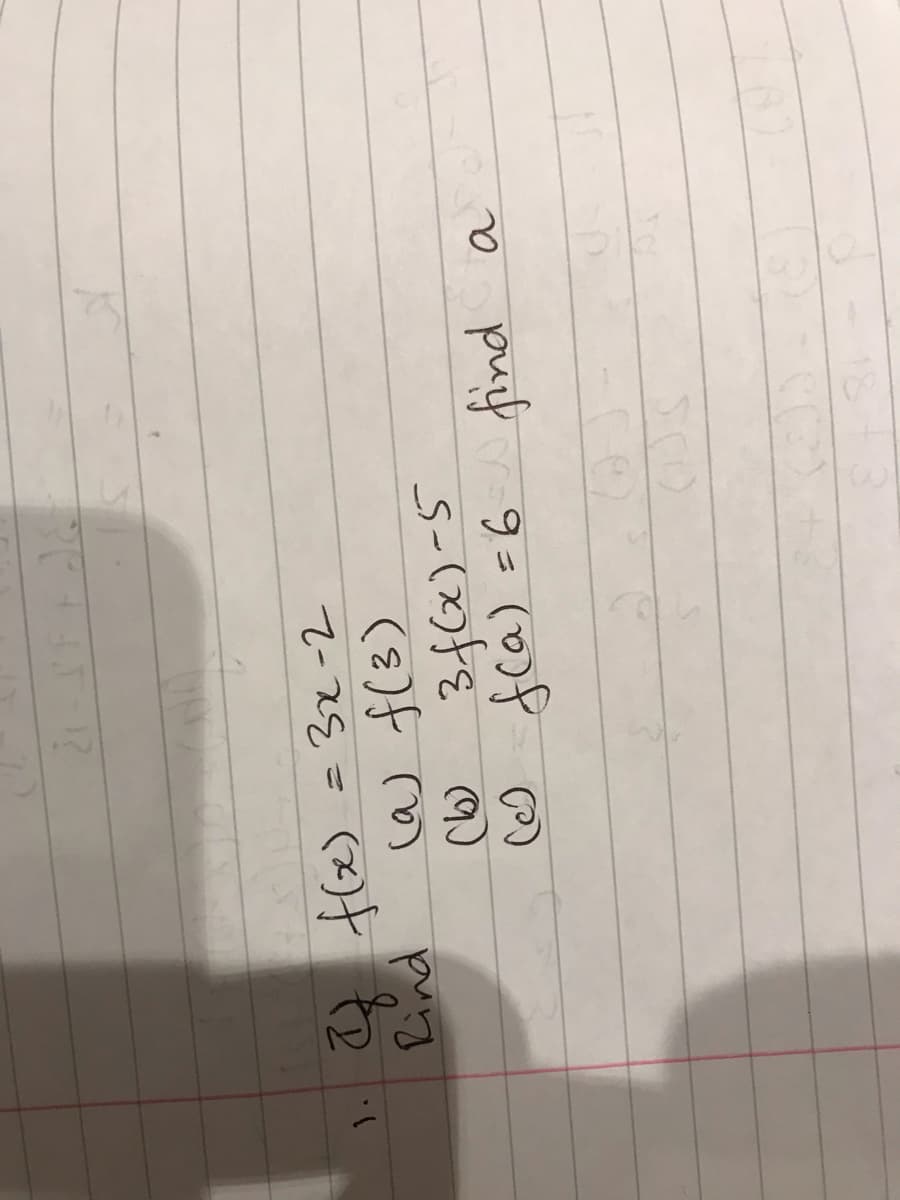 1. If f(x) = 3x-2
Find (a) f(3)
(b) 3f(x)-5
(c) f(a) = 6 find a